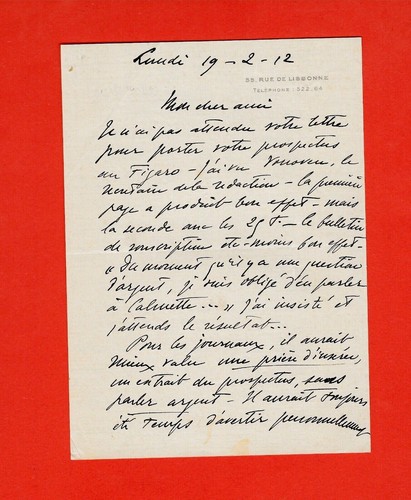 Lundi 19-2-12
55, RUE DE LISBONNE
TÉLÉPHONE: 522.64
Mon cher ami
Je n'ai pas attendu votre lettre
pour porter votre prospectus
au Figaro - J'ai vu le
secrétaire de la rédaction - la première
page a produit bon effet - mais
la seconde avec les 25 f. - le bulletin
de souscription etc - moins bon effet -
"Du moment qu'il y a une question
d'argent, je suis obligé d'en parler
à Calmette..." J'ai insisté et
j'attends le résultat...
Pour les journaux, il aurait
mieux valu une prière d'insérer,
un extrait du prospectus, sans
parler argent - Il aurait toujours
été temps d'avertir personnellement